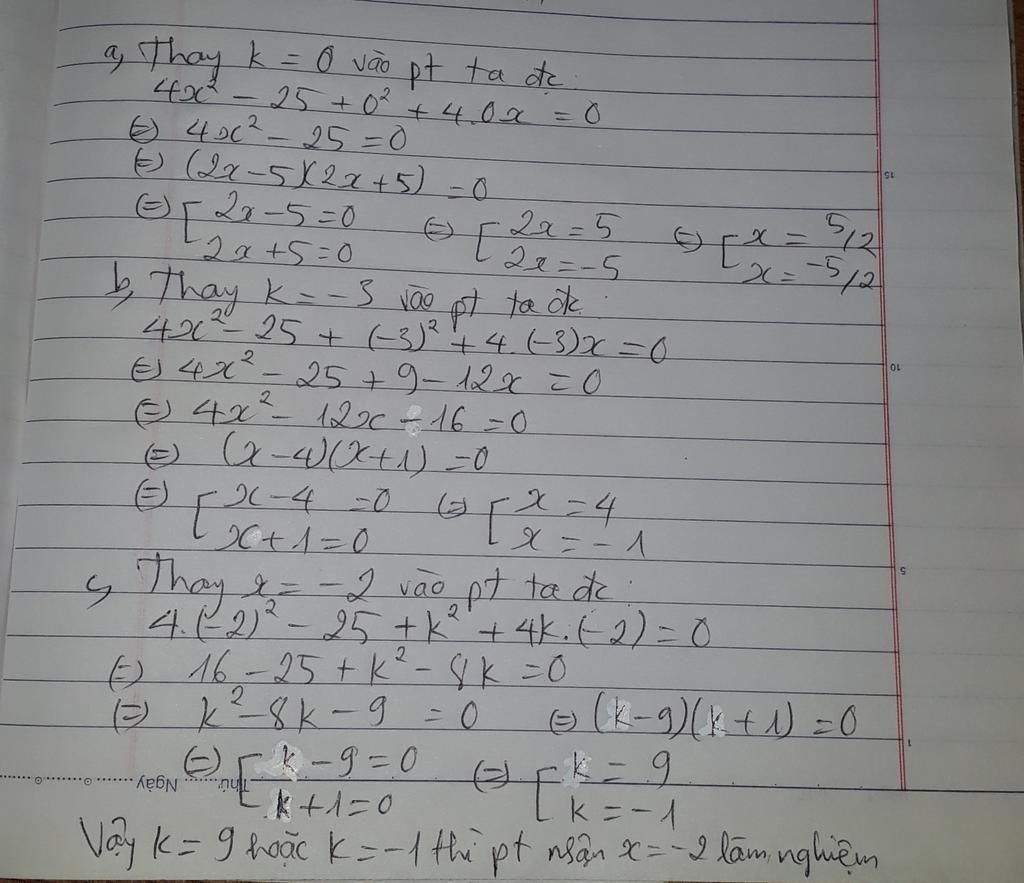 a, Thay k = 0 vào pt ta đc
4x² - 25 + 0² + 4.0x = 0
⇔ 4x² - 25 = 0
⇔ (2x - 5)(2x + 5) = 0
⇔ [ 2x - 5 = 0 ⇔ [ 2x = 5 ⇔ [ x = 5/2
2x + 5 = 0 2x = -5 x = -5/2
b, Thay k = -3 vào pt ta đc
4x² - 25 + (-3)² + 4.(-3)x = 0
⇔ 4x² - 25 + 9 - 12x = 0
⇔ 4x² - 12x - 16 = 0
⇔ (x - 4)(x + 1) = 0
⇔ [ x - 4 = 0 ⇔ [ x = 4
x + 1 = 0 x = -1
c, Thay x = -2 vào pt ta đc :
4.(-2)² - 25 + k² + 4k.(-2) = 0
⇔ 16 - 25 + k² - 8k = 0
⇔ k² - 8k - 9 = 0 ⇔ (k - 9)(k + 1) = 0
⇔ [ k - 9 = 0 ⇔ [ k = 9
k + 1 = 0 k = -1
Vậy k = 9 hoặc k = -1 thì pt nhận x = -2 làm nghiệm
Thứ ...... Ngày
15
10
5
1